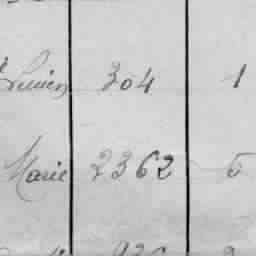 Lucien 304 1
Marie 2362 6